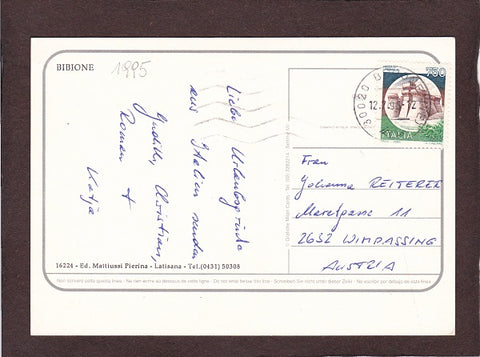 BIBIONE
1995
Liebe Urlaubsgrüße
aus Italien senden
Judith, Christian,
Roman +
Katja
750
ITALIA
30020 B
12.7.9 -12
Frau
Johanna REITERER
11
2632 WIMPASSING
AUSTRIA
16224 - Ed. Mattiussi Pierina - Latisana - Tel.(0431) 50308
Non scrivere sotto questa linea - Ne rien écrire au dessous de cette ligne - Do not write below this line - Schreiben Sie nicht unter dieser Zeile - No escribir por debajo de esta línea